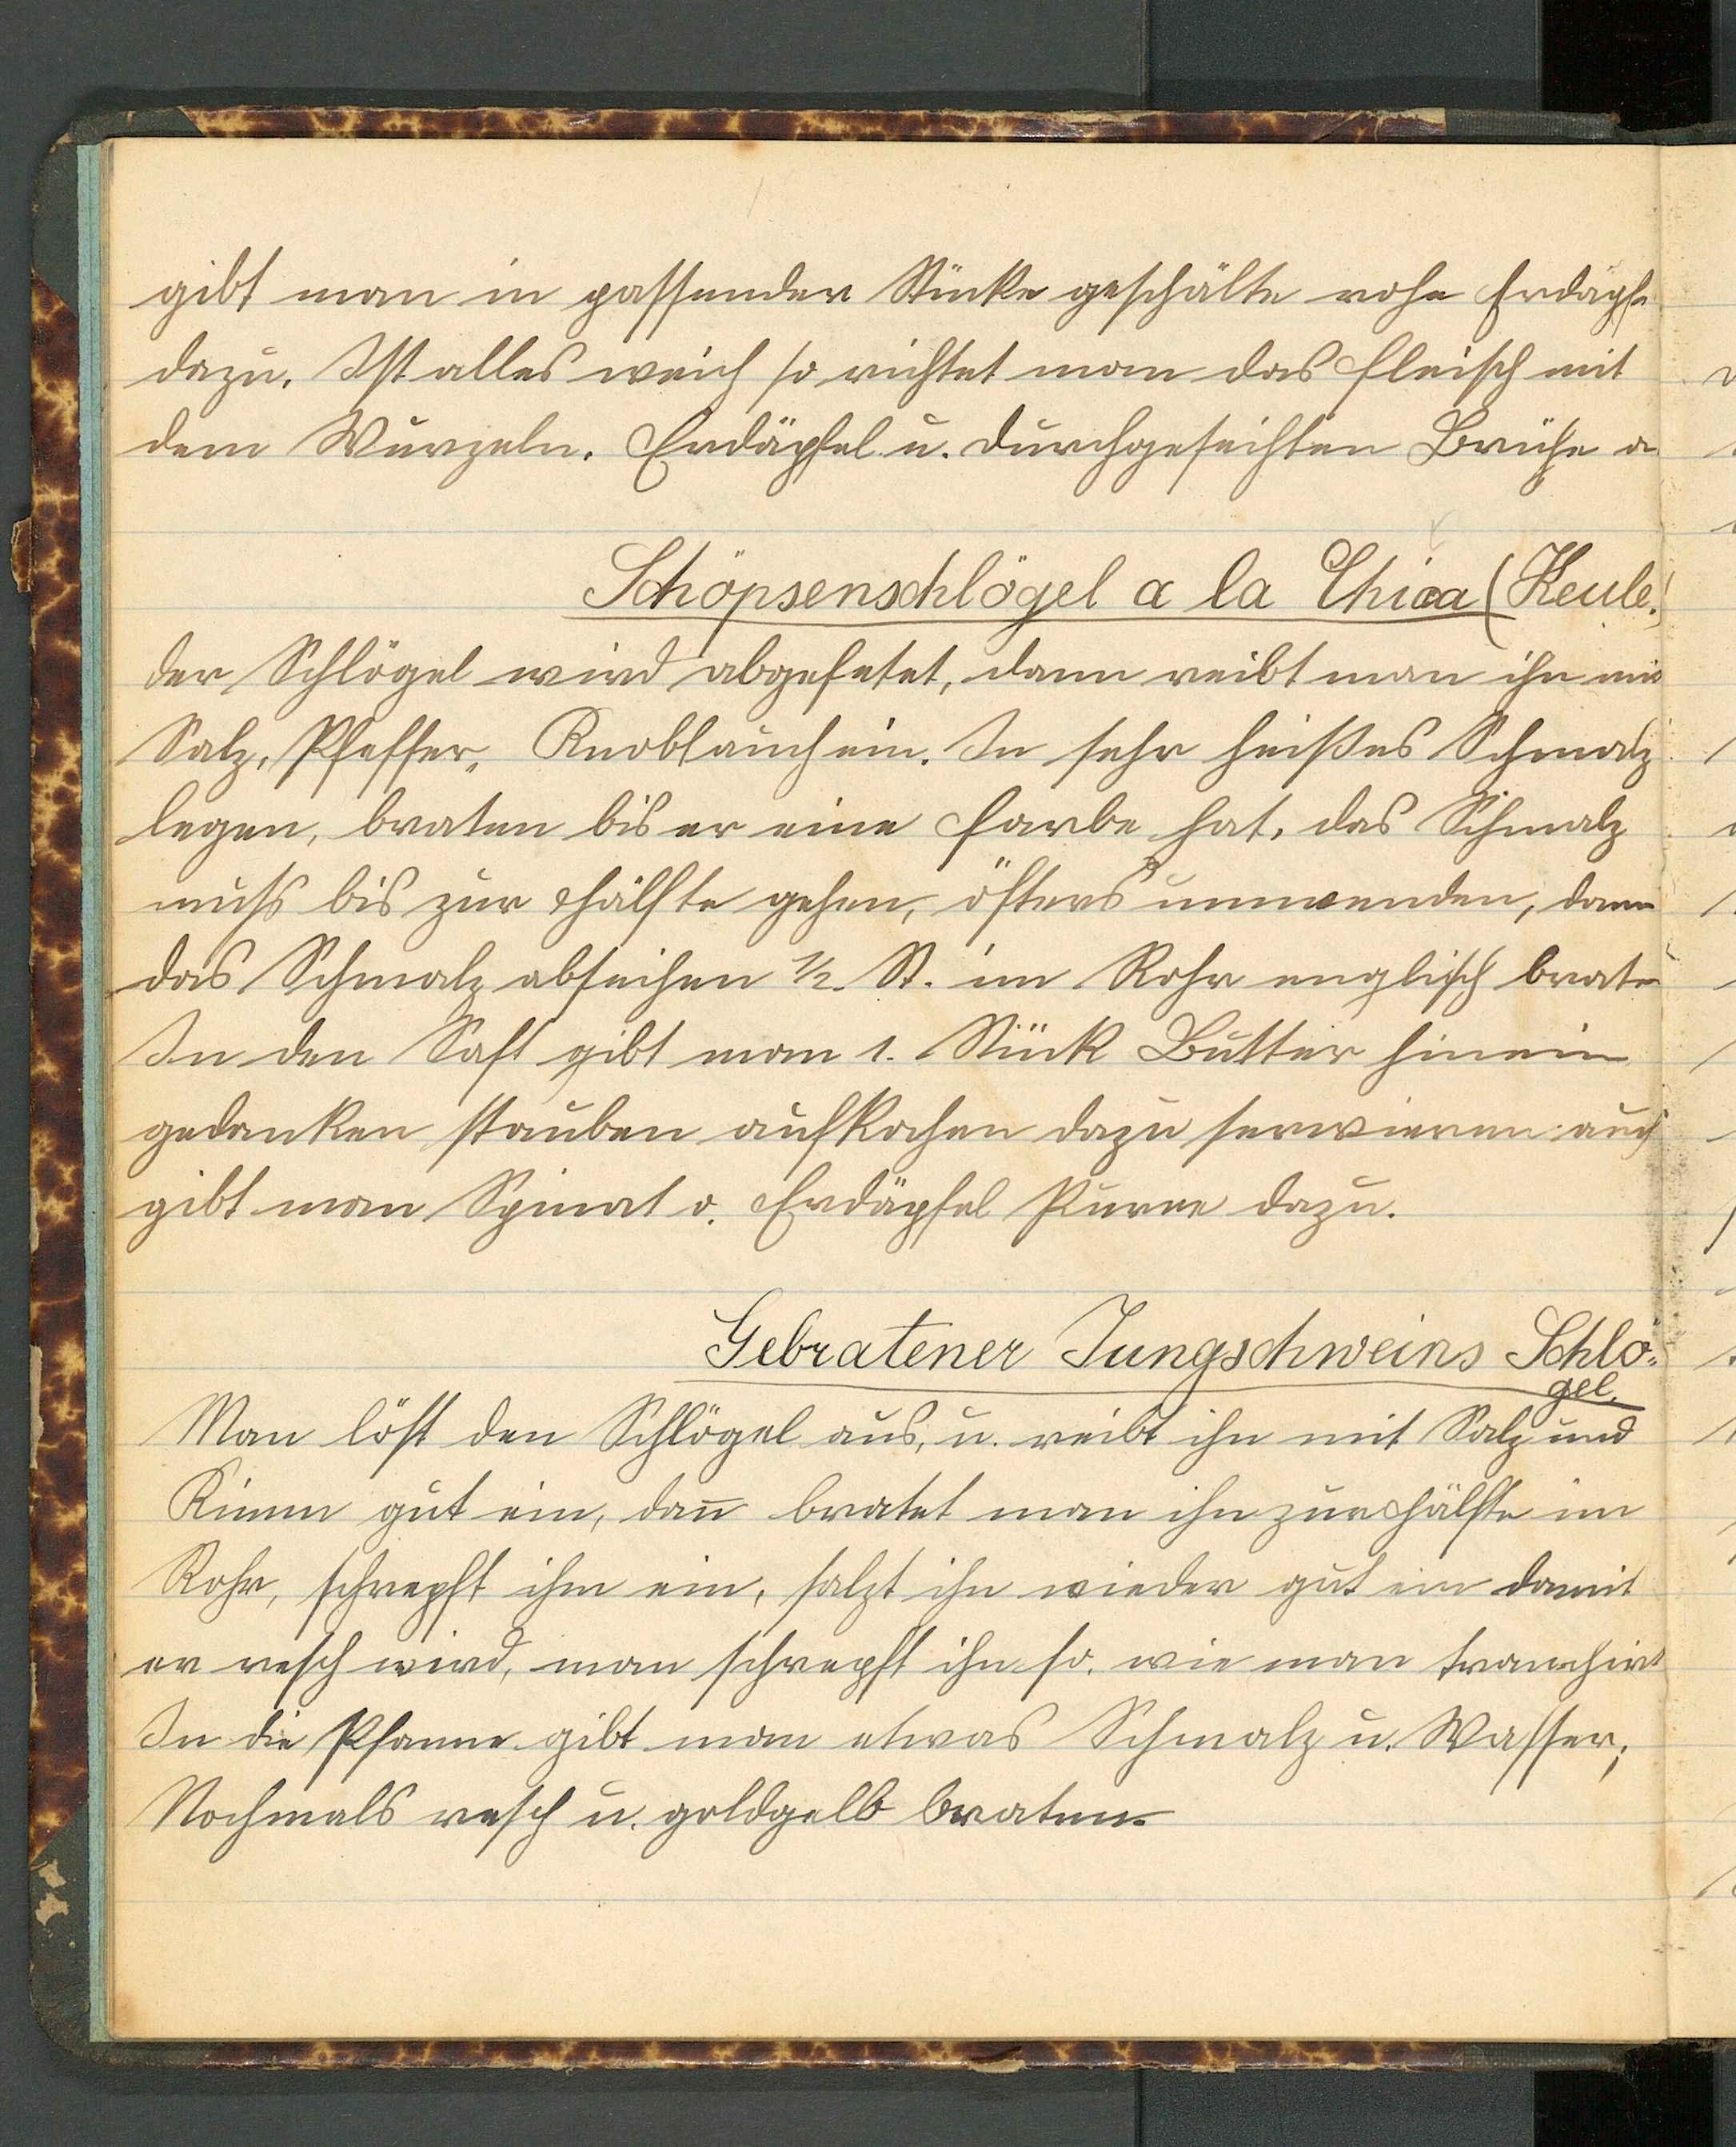 gibt man in passender Stücke geschälte rohe Erdäpfe
dazu. Ist alles weich so richtet man das Fleisch mit
dem Wurzeln. Erdäpfel u. durchgeseihten Brühe a
Schöpsenschlögel a la Chica (Keule.)
der Schlögel wird abgefetet, dann reibt man ihn mit
Salz, Pfeffer, Knoblauch ein. In sehr heißes Schmalz
legen, braten bis er eine Farbe hat, das Schmalz
muß bis zur Hälfte gehen, öfters umwenden, dann
das Schmalz abseihen ½ St. im Rohr englisch braten
In den Saft gibt man 1. Stück Butter hinein
stauben aufkochen dazu servieren auch
gibt man Spinat o. Erdäpfel Puree dazu.
Gebratener Jungschweins Schlö-
gel.
Man löst den Schlögel aus, u. reibt ihn mit Salz und
Kümm gut ein, dan̄ bratet man ihn zur Hälfte im
Rohr, schrepft ihm ein, salzt ihn wieder gut ein damit
er resch wird, man schrepft ihn so, wie man tranchirt
In die Pfanne gibt man etwas Schmalz u. Wasser;
Nochmals resch u. goldgelb braten.